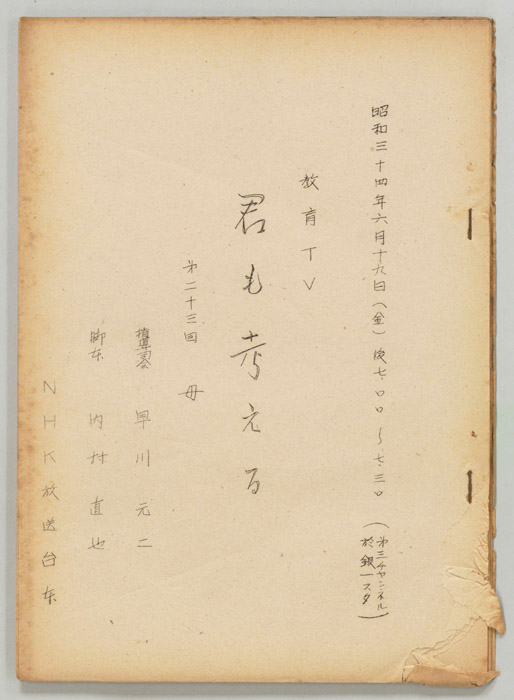 昭和三十四年六月十九日(金)後七.〇〇～七.三〇
(第三チャンネル
於銀一スタ)
教育TV
君も考える
第二十三回 母
指導司会 早川元二
脚本 内村直也
NHK放送台本